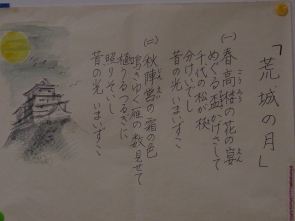 「荒城の月」
(一) 春高楼の花の宴
めぐる盃かげさして
千代の松が枝
分けいでし
昔の光いまいずこ
(二) 秋陣営の霜の色
鳴きゆく雁の数見せて
植うるつるぎに
照りそいし
昔の光いまいずこ